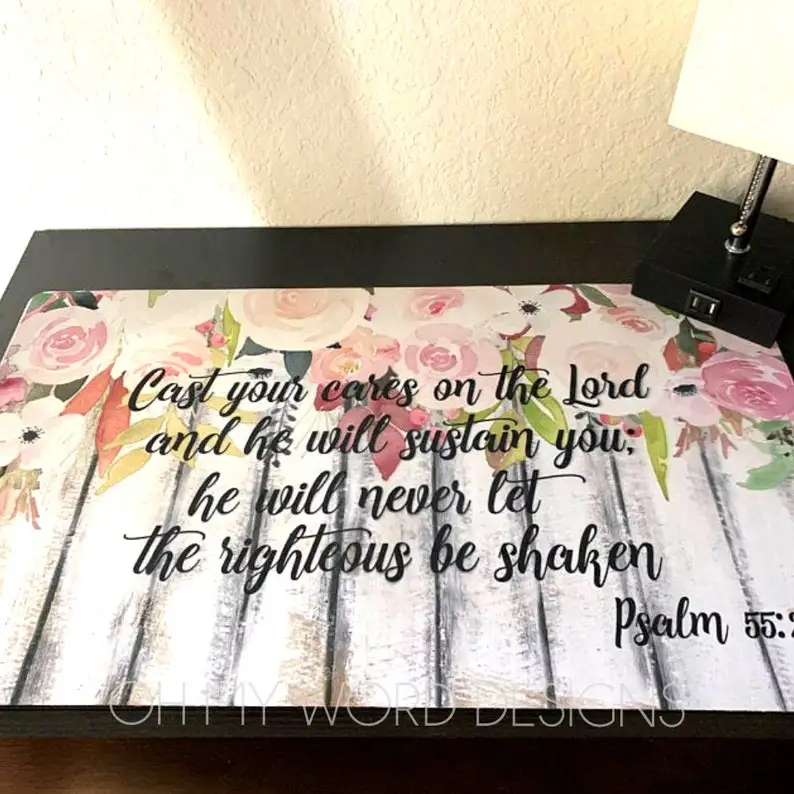 Cast your cares on the Lord
and he will sustain you;
he will never let
the righteous be shaken
Psalm 55:2
OH MY WORD DESIGNS